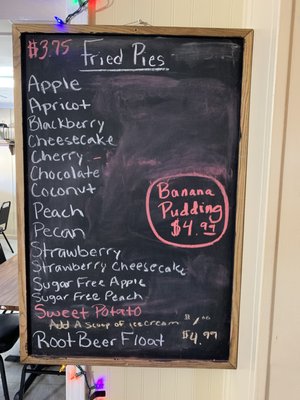 $3.75 Fried Pies
Apple
Apricot
Blackberry
Cheesecake
Cherry -
Chocolate
Coconut
Banana
Pudding
$4.99
Peach
Pecan
Strawberry
Strawberry Cheesecake
Sugar Free Apple
Sugar Free Peach
Sweet Potato
Add A Scoop of ice cream
Root Beer Float $4.99